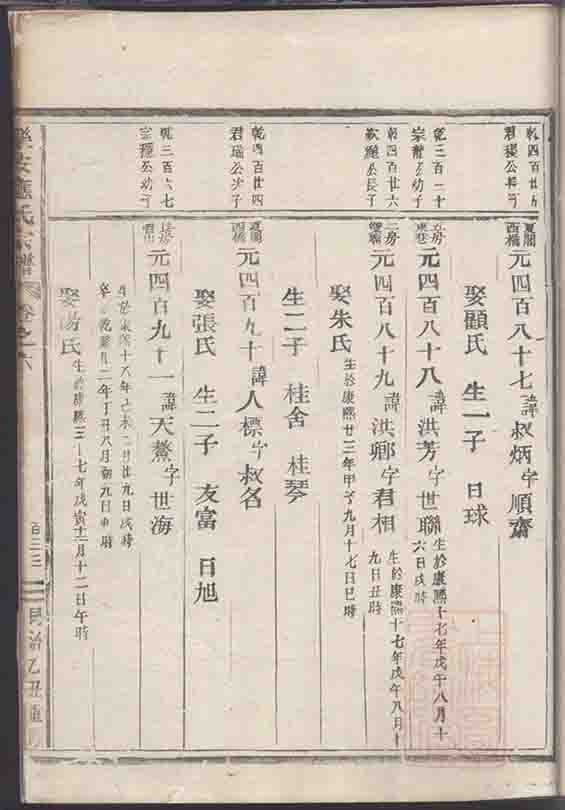 乾四百廿九
君
公
夏閣
西橋
元四百八十七諱叔炳字順齋
娶顧氏 生一子 日球
乾三百二十
宗龍公幼子
元四百八十八諱洪芳字世聯生於康熙十七年戊午八月十
六日戌時
乾四百廿六
公長子
房
元四百八十九諱洪卿字君相生於康熙十七年戊午八月十
九日丑時
娶朱氏生於康熙廿三年甲子九月十七日巳時
生二子 桂舍 桂琴
乾四百廿四
君瑞公少子
夏閣
西橋
元四百九十諱人標字叔名
娶張氏 生二子 友富 日旭
乾三百六七
宗穩公幼子
元四百九十一諱天鰲字世海
生於康熙十八年己未二月廿九日戌時
卒於乾隆廿二年丁丑八月初九日申時
娶湯氏生於康熙三十七年戊寅十二月十二日午時
樂安應氏宗譜 卷之六
同治乙丑重